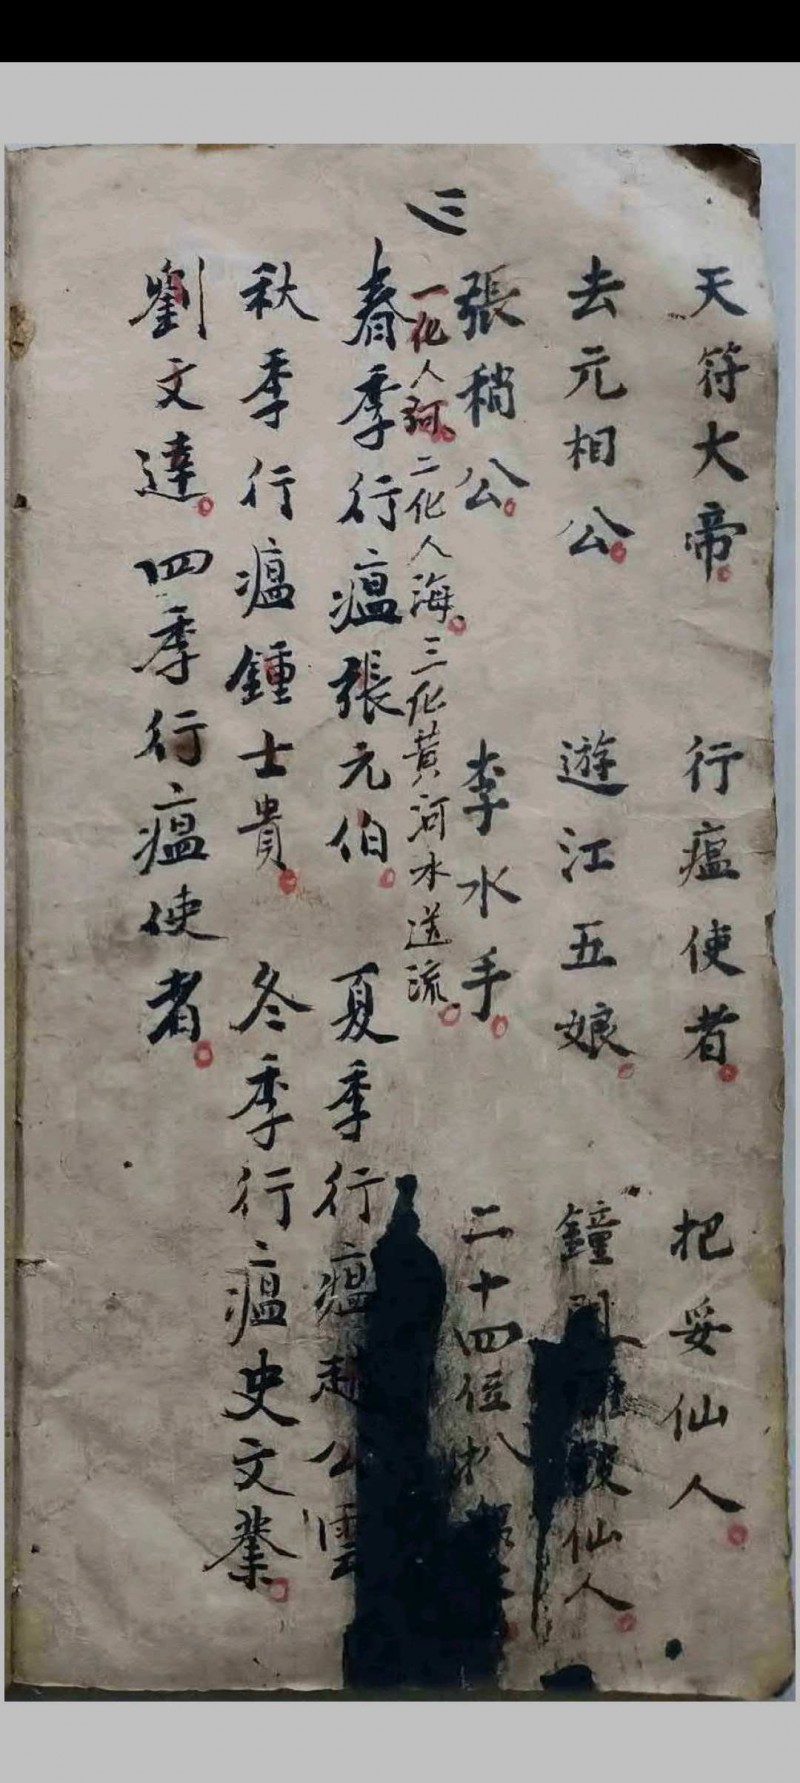 天符大帝 行瘟使者 把妥仙人
去元相公 遊江五娘 鐘 仙人
三
張稍公 李水手 二十四位
一化人河 二化人海 三化黄河水送流
春季行瘟張元伯 夏季行瘟趙公雲
秋季行瘟鍾士貴 冬季行瘟史文業
劉文達 四季行瘟使者